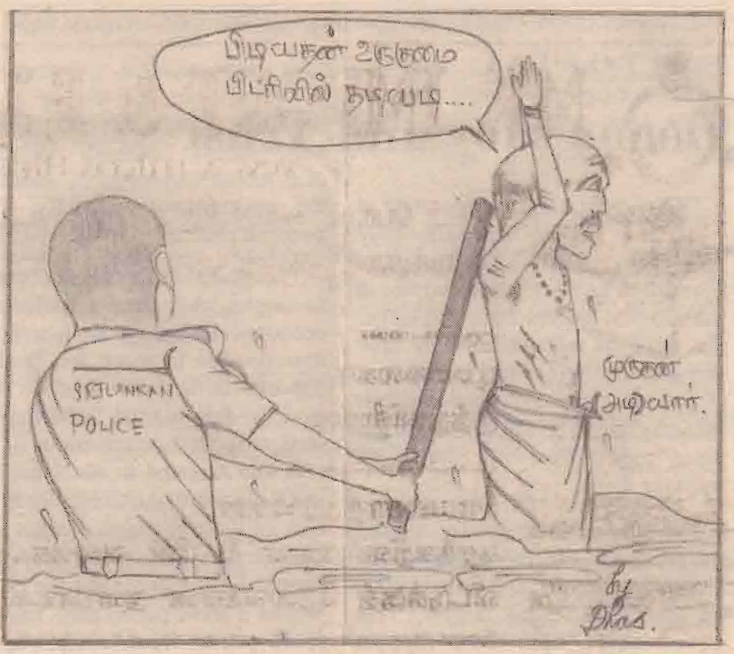 பிடிபதன் உருகுமை
பிட்ரிவில் தடியடி....
SRILANKAN
POLICE
முருகன்
அடியார்.
by
Dhas.